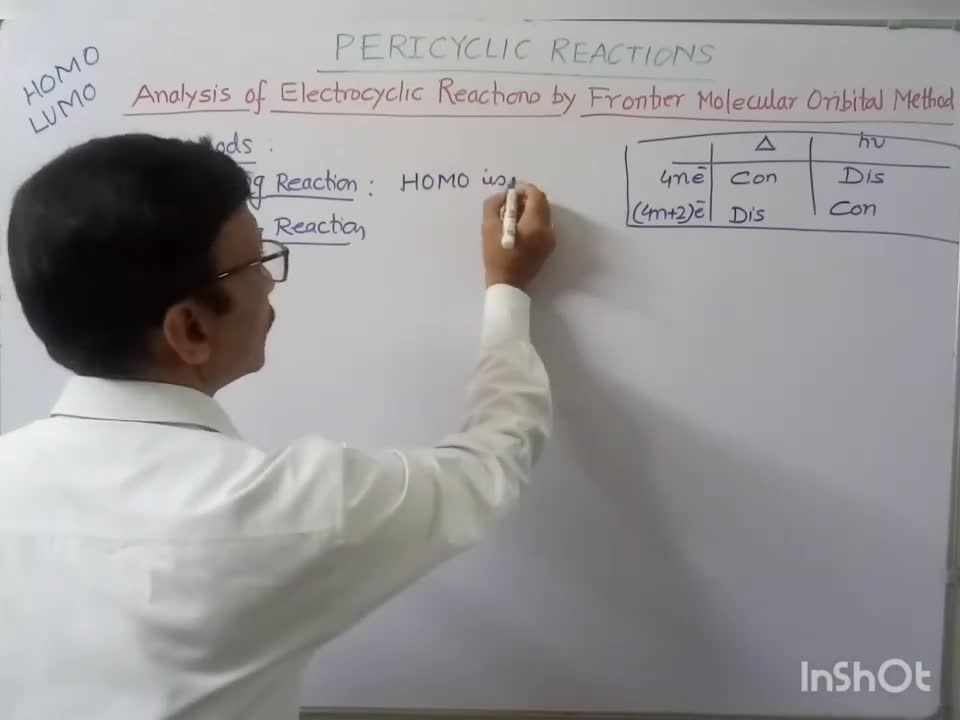 PERICYCLIC REACTIONS
HOMO
LUMO
Analysis of Electrocyclic Reactions by Frontier Molecular Oribital Method
Reaction : HOMO is
Reaction
Δ hν
4nē Con Dis
(4n+2)ē Dis Con
InShOt